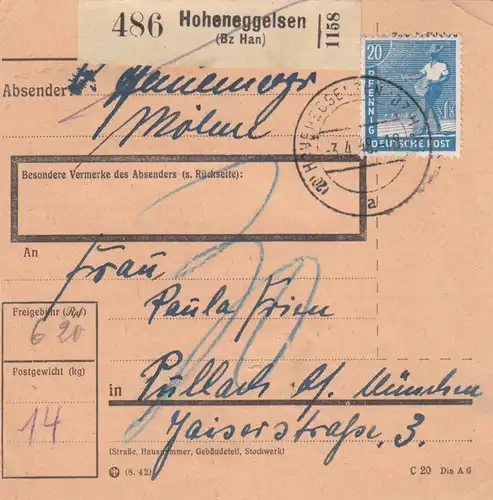 486 Hoheneggelsen
(Bz Han)
1158
20
PFENNIG
DEUTSCHE POST
Absender
Möhne
(20) HOHENEGGELSEN
-3.4.48
a
Besondere Vermerke des Absenders (s. Rückseite):
An
Frau
Paula
Freigebühr (Rpf)
6 20
Postgewicht (kg)
14
in Pullach b/. München
Kaiserstraße. 3.
(Straße, Hausnummer, Gebäudeteil, Stockwerk)
(8. 42)
C 20 Din A 6